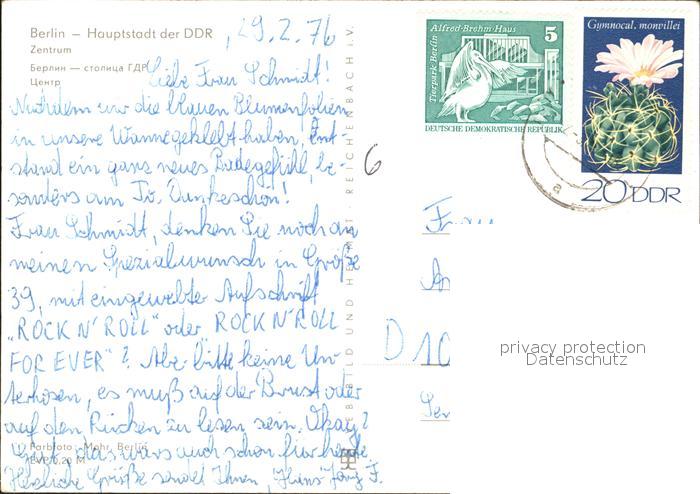 Berlin – Hauptstadt der DDR
Zentrum
Берлин — столица ГДР
Центр
29.2.76
Liebe Frau Schmidt!
Nachdem wir die blauen Blumenfolien
in unsere Wanne geklebt haben, ent-
stand ein ganz neues Badegefühl, be-
sonders am Dankeschön!
Frau Schmidt, denken Sie noch an
meinen Spezialwunsch in Größe
39, mit eingewebter Aufschrift
„ROCK N' ROLL" oder ROCK N' ROLL
FOR EVER"? Aber bitte keine Un-
terhosen, es muß auf der Brust oder
auf den Rücken zu lesen sein. Okay?
Gut, das wärs auch schon für heute.
Herzliche Grüße sendet Ihnen, Hans Jörg F.
Farbfoto: Mohr, Berlin
EVP 0,20 M
BILD UND HEIMAT REICHENBACH i.V.
6
Alfred-Brehm-Haus
5
Tierpark Berlin
DEUTSCHE DEMOKRATISCHE REPUBLIK
Gymnocal. monvillei
20 DDR
a
Frau
D 10
privacy protection
Datenschutz